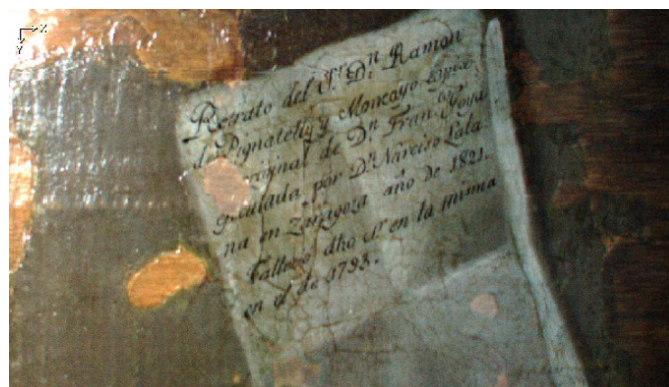 Retrato del S.r D.n Ramon
de Pignatelly y Moncayo copia
original de D.n Fran.co Goya
egecutada por D.n Narciso Lala
na en Zaragoza año de 1821.
Fallecio dho S.r en la misma
en el de 1793.
Z
Y